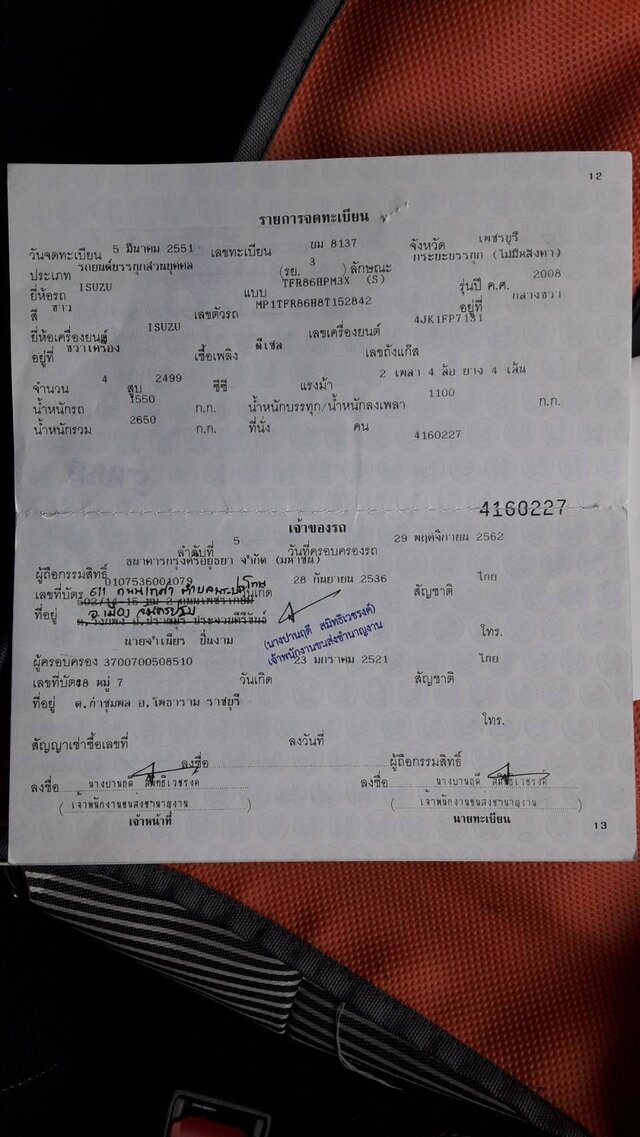 12
รายการจดทะเบียน
วันจดทะเบียน 5 มีนาคม 2551 เลขทะเบียน ยม 8137 จังหวัด เพชรบุรี
ประเภท รถยนต์บรรทุกส่วนบุคคล (รย. 3 ) ลักษณะ กระบะบรรทุก (ไม่มีหลังคา)
ยี่ห้อรถ ISUZU แบบ TFR86HPM3X (S) รุ่นปี ค.ศ. 2008
สี ขาว เลขตัวรถ MP1TFR86H8T152842 อยู่ที่ กลางขวา
ยี่ห้อเครื่องยนต์ ISUZU เลขเครื่องยนต์ 4JK1FP7131
อยู่ที่ ขวาเครื่อง เชื้อเพลิง ดีเซล เลขถังแก๊ส
จำนวน 4 สูบ 2499 ซีซี แรงม้า 2 เพลา 4 ล้อ ยาง 4 เส้น
น้ำหนักรถ 1550 ก.ก. น้ำหนักบรรทุก/น้ำหนักลงเพลา 1100 ก.ก.
น้ำหนักรวม 2650 ก.ก. ที่นั่ง คน 4160227
4160227
เจ้าของรถ
ลำดับที่ 5 วันที่ครอบครองรถ 29 พฤศจิกายน 2562
ผู้ถือกรรมสิทธิ์ ธนาคารกรุงศรีอยุธยา จำกัด (มหาชน)
เลขที่บัตร 0107536001079 วันเกิด 28 กันยายน 2536 สัญชาติ ไทย
611
ที่อยู่ 502/14-15 หมู่ 2 ถนนเพชรเกษม
อ.เมือง
(นางปานฤดี สมิทธิเวชรงค์)
เจ้าพนักงานขนส่งชำนาญงาน
โทร.
ผู้ครอบครอง นายจำเนียร ปิ่นงาม
เลขที่บัตร 3700700508510 วันเกิด 23 มกราคม 2521 สัญชาติ ไทย
ที่อยู่ 18 หมู่ 7
ต.กำชุมพล อ.โพธาราม ราชบุรี
โทร.
สัญญาเช่าซื้อเลขที่ ลงวันที่
ลงชื่อ ผู้ถือกรรมสิทธิ์
ลงชื่อ นางปานฤดี สมิทธิเวชรงค์ ลงชื่อ นางปานฤดี สมิทธิเวชรงค์
( เจ้าพนักงานขนส่งชำนาญงาน ) ( เจ้าพนักงานขนส่งชำนาญงาน )
เจ้าหน้าที่ นายทะเบียน
13